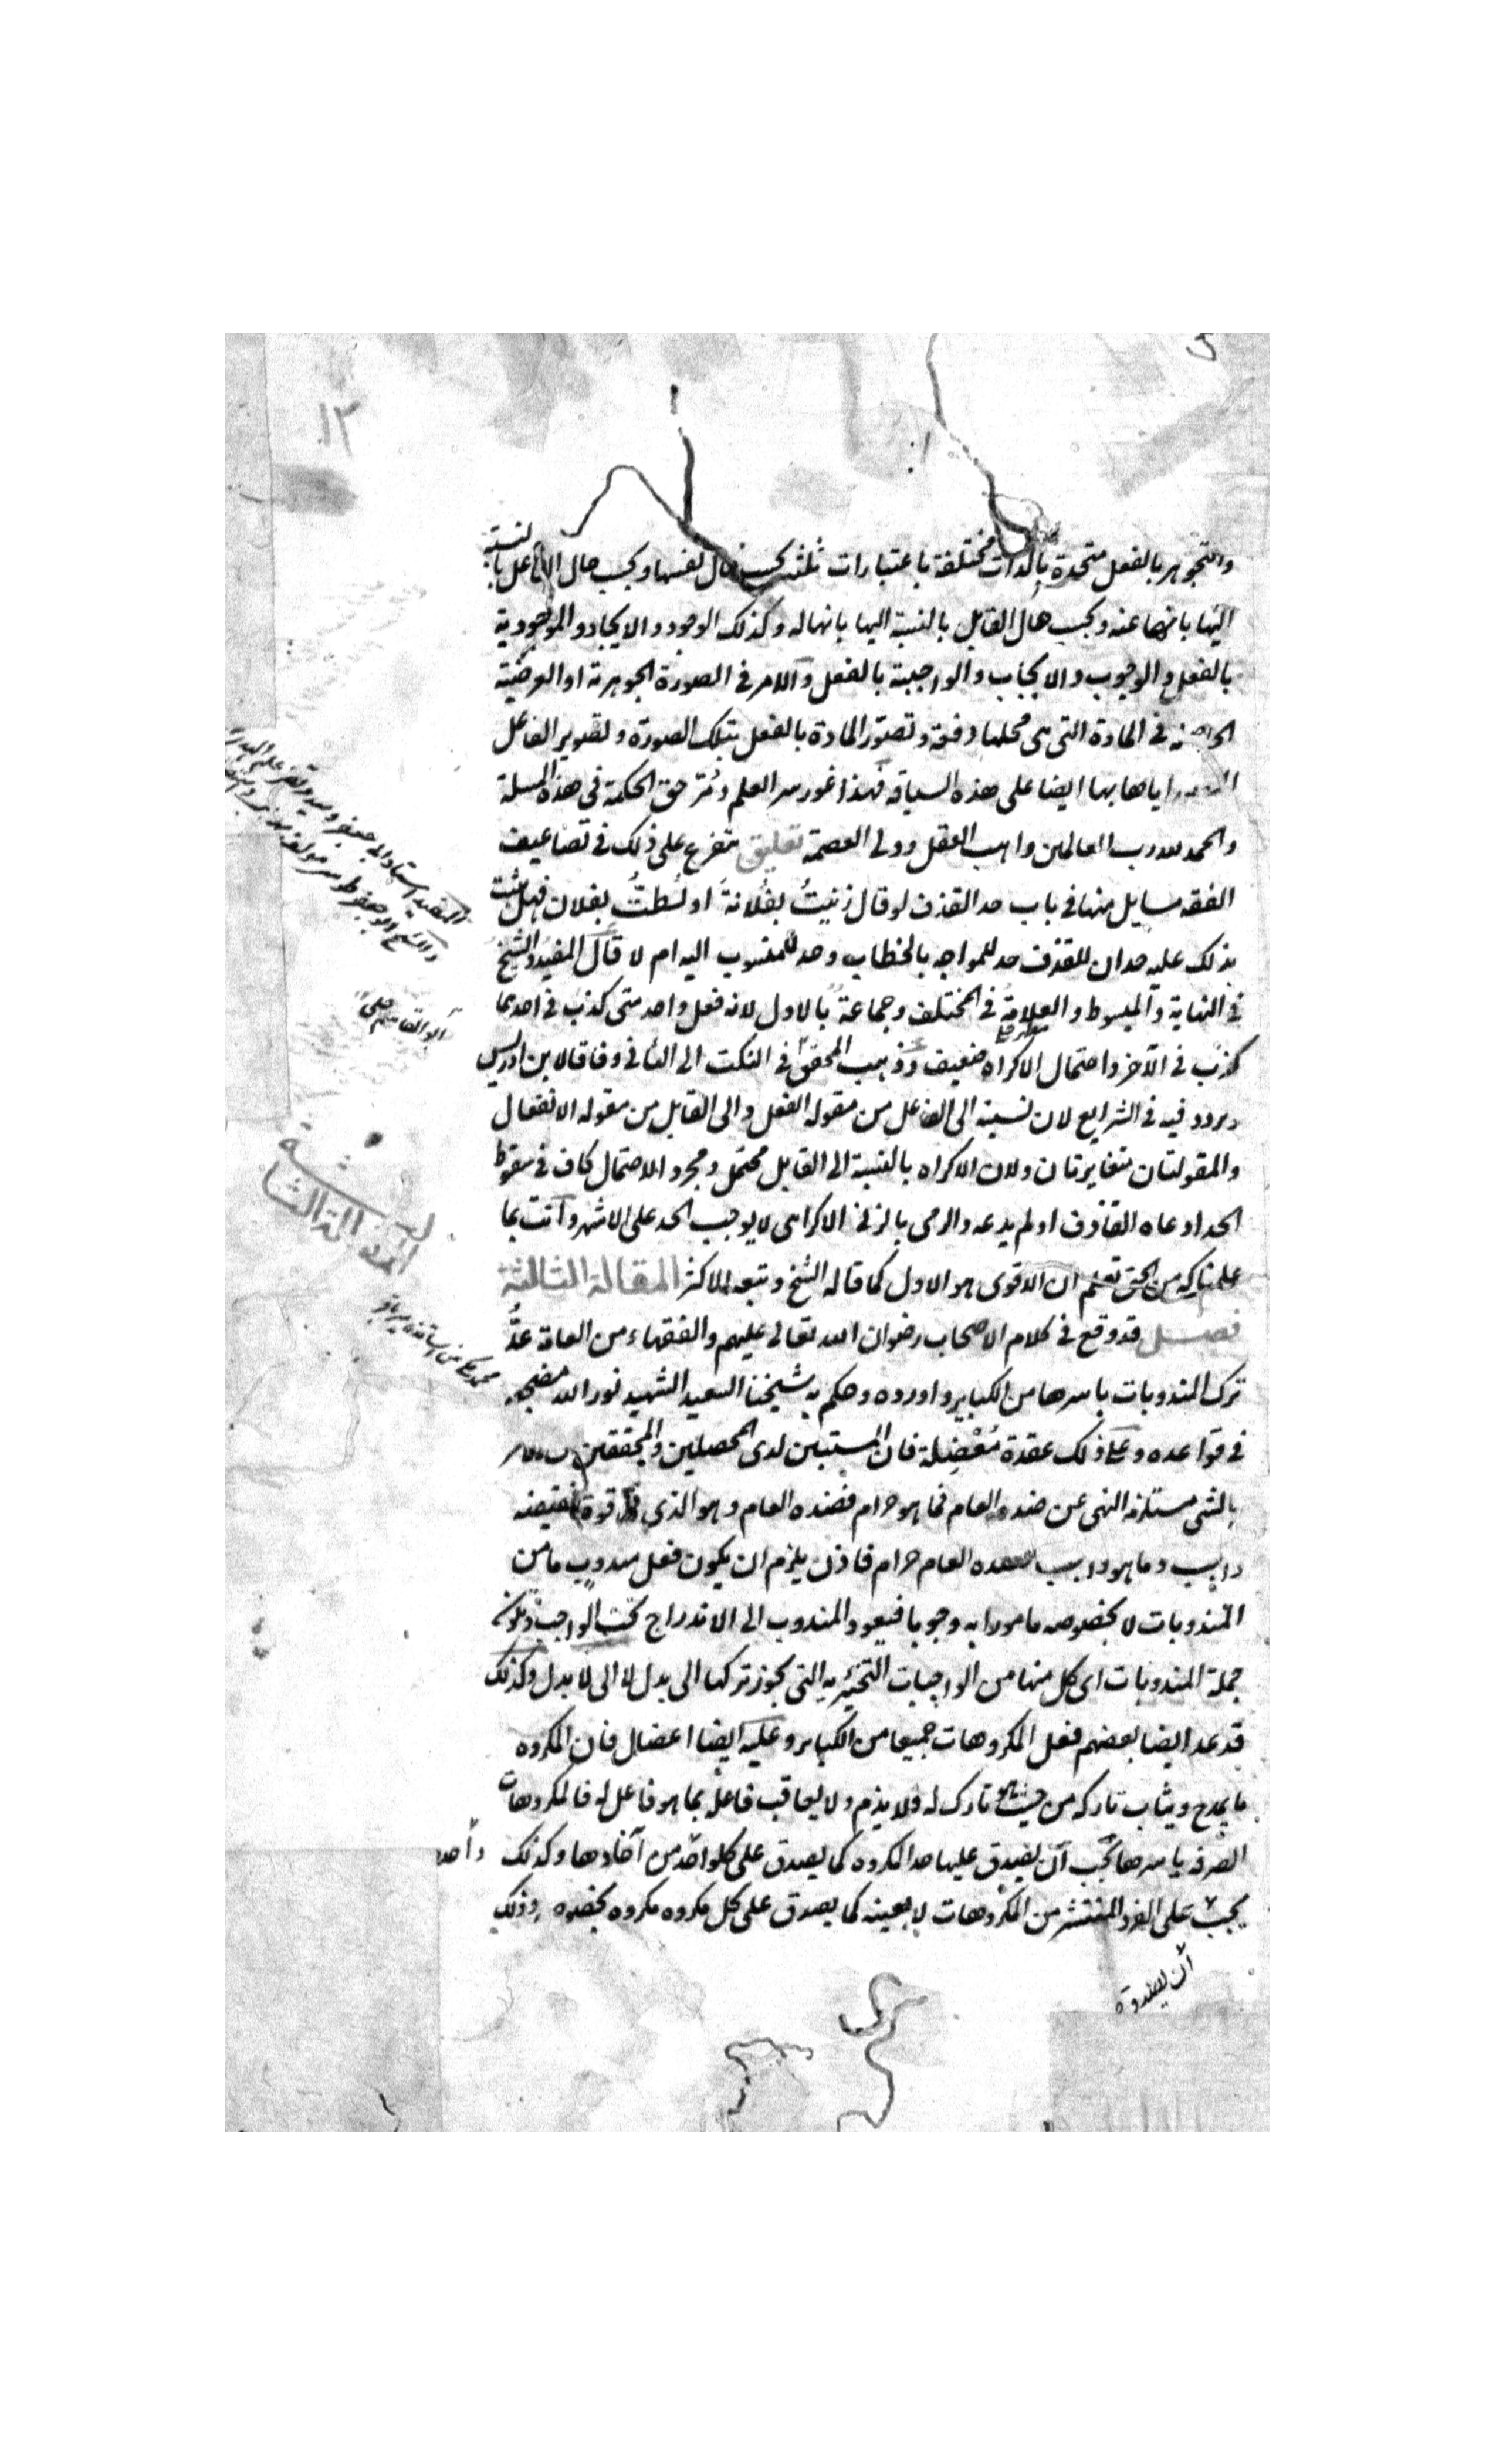 والتجوهر بالفعل متحدة بالذات مختلفة باعتبارات ثلثة بحسب حال نفسها وبحسب حال الفاعل بالنسبة
اليها بانها عنه وبحسب حال القابل بالنسبة اليها بانها له وكذلك الوجود والايجاد والموجودية
بالفعل والوجوب والايجاب والواجبية بالفعل والامر في الصورة الجوهرية او العرضية
في المادة التي هي محلها دفعة وتصور المادة بالفعل بتلك الصورة وتصوير الفاعل
اياها بها ايضا على هذه السياقة فهذا غور سر العلم ومُرّ حق الحكمة في هذه المسلة
والحمد لله رب العالمين واهب العقل وولى العصمة تعليق متفرع على ذلك في تضاعيف
الفقه مسايل منها في باب حد القذف لو قال زنيتُ بفلانة او لُطتُ بفلان فهل يثبت
بذلك عليه حدان للقذف حد للمواجه بالخطاب وحد للمنسوب اليه ام لا قال المفيد والشيخ
في النهاية والمبسوط والعلامة في المختلف وجماعة بالاول لانه فعل واحد متى كذب في احدهما
كذب في الآخر واحتمال الاكراه ضعيف وذهب المحقق في النكت الى الثاني وفاقا لابن ادريس
وتردد فيه في الشرايع لان نسبته الى الفاعل من مقولة الفعل والى القابل من مقولة الانفعال
والمقولتان متغايرتان ولان الاكراه بالنسبة الى القابل محتمل ومجرد الاحتمال كاف في سقوط
الحد ادعاه القاذف او لم يدعه والرمى بالزنا الاكراهى لا يوجب الحد على الاشهر وانت بما
علمناكه من الحق تعلم ان الاقوى هو الاول كما قاله الشيخ وتبعه الاكثر المقالة الثالثة
فصل قد وقع في كلام الاصحاب رضوان الله تعالى عليهم والفقهاء من العامة عدُّ
ترك المندوبات باسرها من الكباير واورده وحكم به شيخنا السعيد الشهيد نور الله مضجعه
في قواعده وعلى ذلك عقدة مُعْضِلة فان المستبين لدى المحصلين والمحققين
بالشى مستلزمه النهى عن ضده العام فما هو حرام فضده العام وهو الذي في قوة نقيضه
واجب وما هو واجب فضده العام حرام فاذن يلزم ان يكون فعل مندوب ما من
المندوبات لا بخصوصه مامورا به وجوبا فيعود المندوب الى الاندراج تحت الواجب
جملة المندوبات اى كل منها من الواجبات التخييرية التي يجوز تركها الى بدل لا الى لا بدل وكذلك
قد عد ايضا بعضهم فعل المكروهات جميعا من الكباير وعليه ايضا اعضال فان المكروه
ما يمدح ويثاب تاركه من حيث هو تارك له ولا يذم ولا يعاقب فاعله بما هو فاعل له فالمكروهات
الصرفة باسرها يجب ان يصدق عليها حد المكروه كما يصدق على كل واحد من آحادها وكذلك
يجب على الفرد المنتشر من المكروهات لا بعينه كما يصدق على كل مكروه مكروه بخصوصه وذلك
ان يصدق
ابو القاسم حلى
المقالة الثالثة